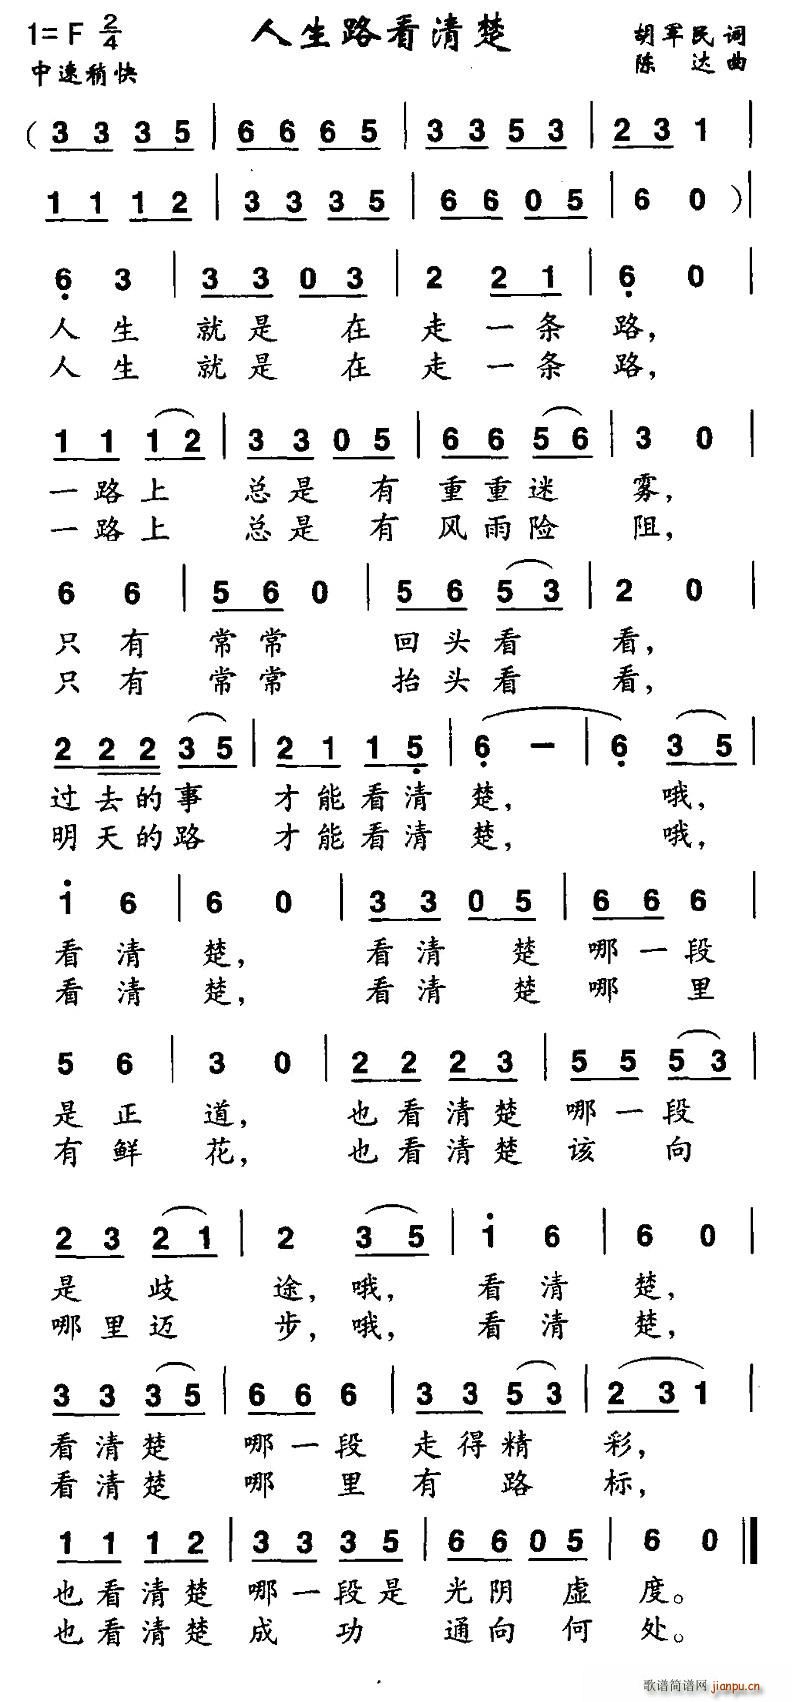 1=F 2/4 人生路看清楚 胡军民 词
中速稍快 陈达 曲
( 3 3 3 5 | 6 6 6 5 | 3 3 5 3 | 2 3 1 |
1 1 1 2 | 3 3 3 5 | 6 6 0 5 | 6 0 ) |
6 3 | 3 3 0 3 | 2 2 1 | 6 0 |
人生 就是在走一条路，
人生 就是在走一条路，
1 1 1 2 | 3 3 0 5 | 6 6 5 6 | 3 0 |
一路上 总是有重重迷雾，
一路上 总是有风雨险阻，
6 6 | 5 6 0 | 5 6 5 3 | 2 0 |
只有常常 回头看看，
只有常常 抬头看看，
2 2 2 3 5 | 2 1 1 5 | 6 － | 6 3 5 |
过去的事 才能看清楚， 哦，
明天的路 才能看清楚， 哦，
1 6 | 6 0 | 3 3 0 5 | 6 6 6 |
看清楚， 看清楚哪一段
看清楚， 看清楚哪里
5 6 | 3 0 | 2 2 2 3 | 5 5 5 3 |
是正道， 也看清楚哪一段
有鲜花， 也看清楚该向
2 3 2 1 | 2 3 5 | 1 6 | 6 0 |
是歧途，哦， 看清楚，
哪里迈步，哦， 看清楚，
3 3 3 5 | 6 6 6 | 3 3 5 3 | 2 3 1 |
看清楚 哪一段走得精彩，
看清楚 哪里有路标，
1 1 1 2 | 3 3 3 5 | 6 6 0 5 | 6 0 ‖
也看清楚哪一段是光阴虚度。
也看清楚成功通向何处。
歌谱简谱网 jianpu.cn